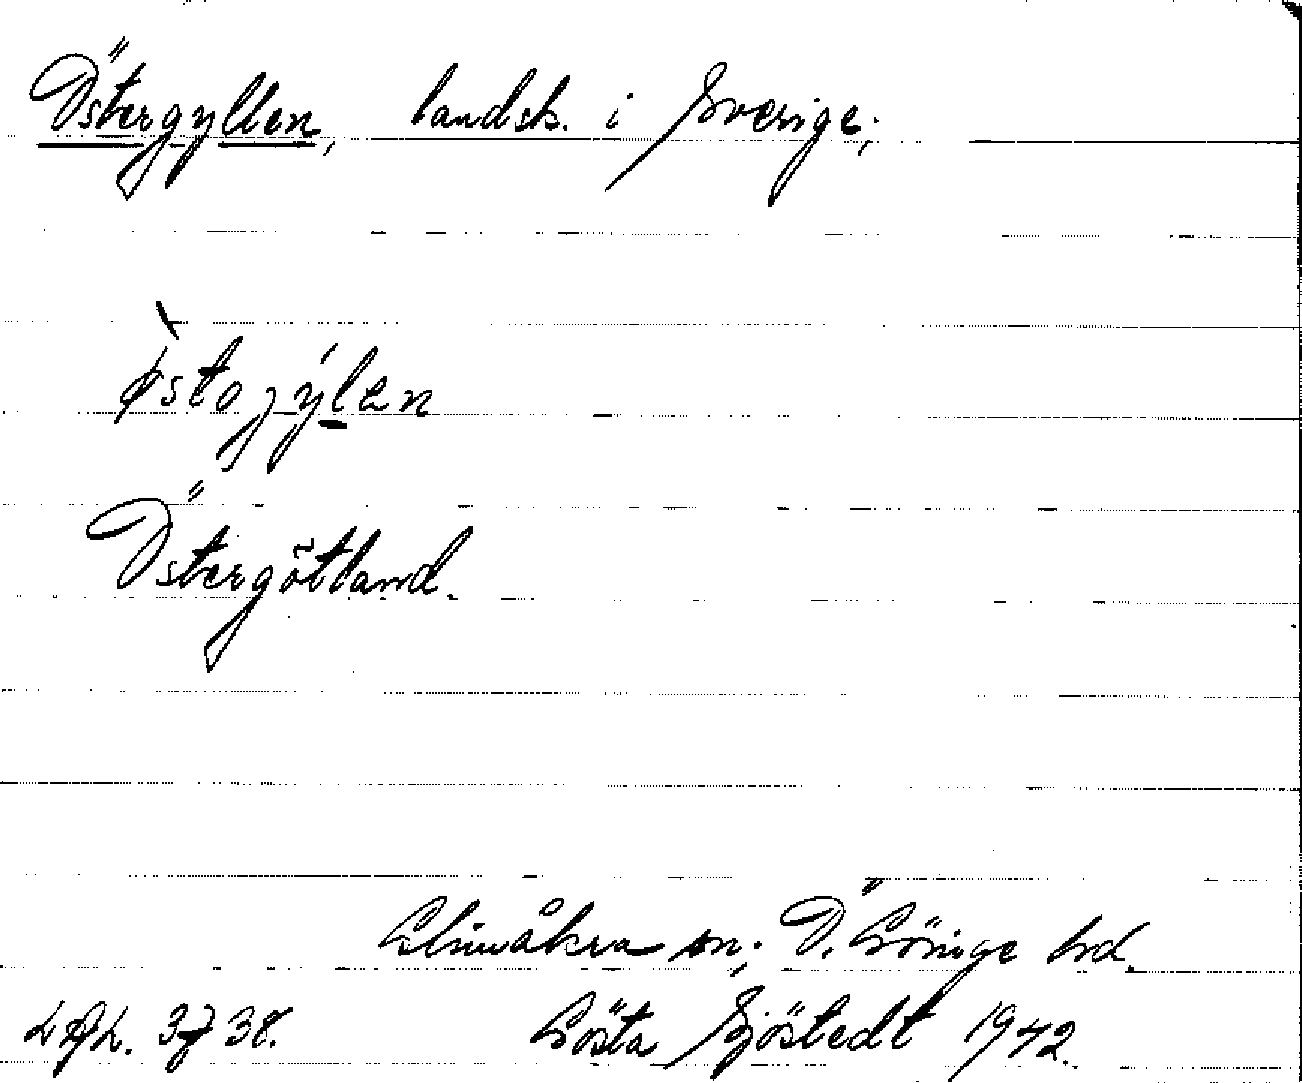 Östergyllen, landsk. i Sverige;
Östergötland.
Glimåkra sn; Ö. Göinge hd.
3738. Gösta Sjöstedt 1942.